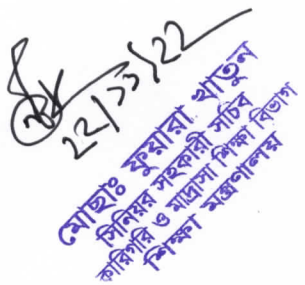 ২২/১১/২২
মোছাঃ ফুয়ারা খাতুন
সিনিয়র সহকারী সচিব
কারিগরি ও মাদ্রাসা শিক্ষা বিভাগ
শিক্ষা মন্ত্রণালয়